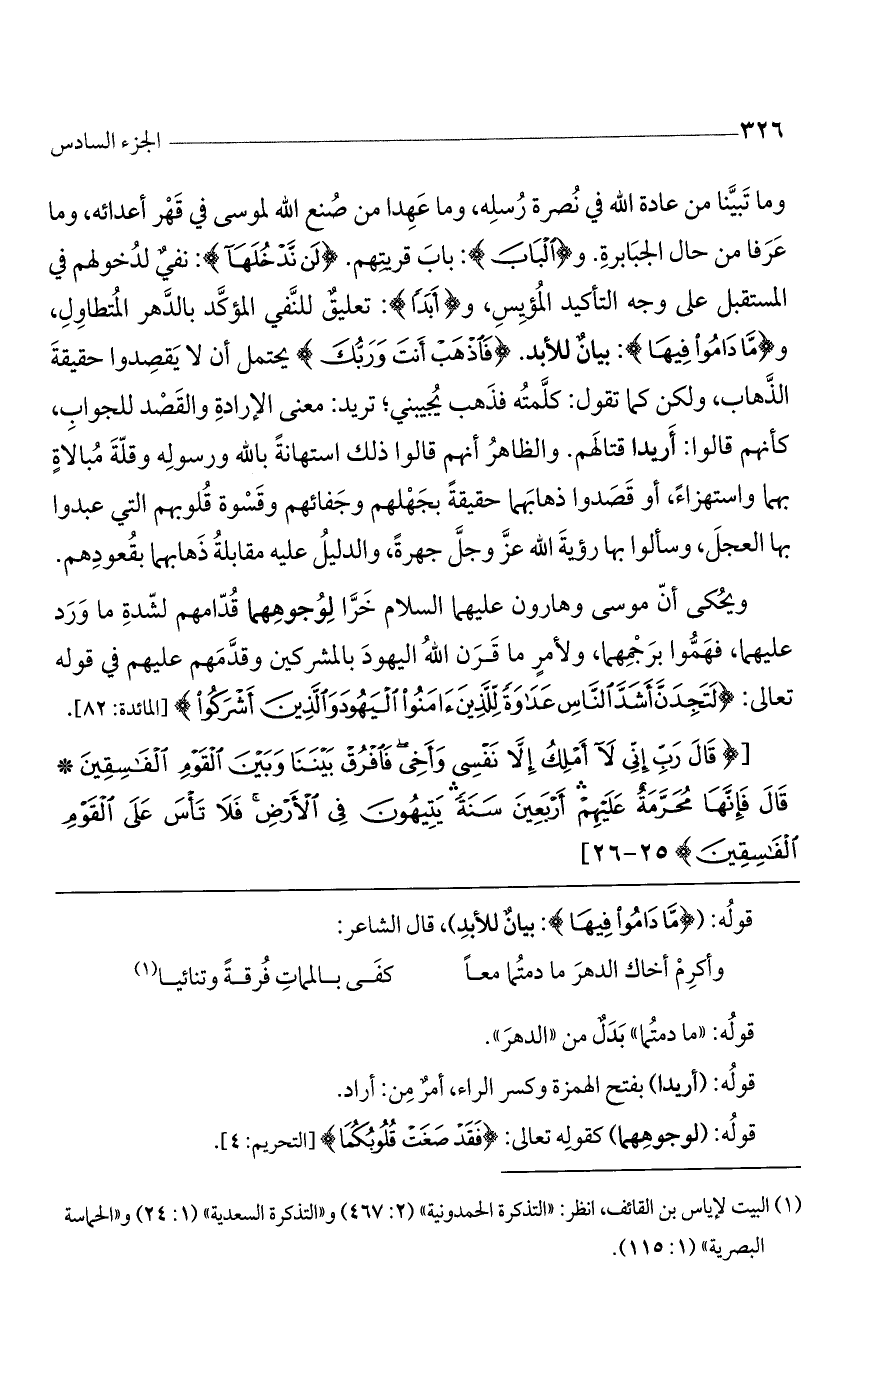 ٣٢٦ الجزء السادس
وما تَبيَّنا من عادة الله في نُصرة رُسلِه، وما عَهِدا من صُنع الله لموسى في قَهْر أعدائه، وما
عَرَفا من حال الجبَابرةِ. و﴿ٱلْبَابَ﴾: بابَ قريتِهم. ﴿لَن نَّدْخُلَهَآ﴾: نفيٌ لدُخولهم في
المستقبل على وجه التأكيد المُؤيِسِ، و﴿أَبَدًا﴾: تعليقٌ للنَّفي المؤكَّد بالدَّهر المُتطاوِلِ،
و﴿مَّا دَامُوا۟ فِيهَا﴾: بيانٌ للأبد. ﴿فَٱذْهَبْ أَنتَ وَرَبُّكَ﴾ يحتمل أن لا يَقصِدوا حقيقةَ
الذَّهاب، ولكن كما تقول: كلَّمتُه فذَهب يُجيبني؛ تريد: معنى الإرادةِ والقَصْد للجوابِ،
كأنهم قالوا: أَرِيدا قتالَهم. والظاهرُ أنهم قالوا ذلك استهانةً بالله ورسولِه وقلّةَ مُبالاةٍ
بهما واستهزاءً، أو قَصَدوا ذهابَهما حقيقةً بجَهْلهم وجَفائهم وقَسْوة قُلوبهم التي عبدوا
بها العجلَ، وسألوا بها رؤيةَ الله عزَّ وجلَّ جهرةً، والدليلُ عليه مقابلةُ ذَهابهما بقُعودِهم.
ويُحكى أنّ موسى وهارون عليهما السلام خَرَّا لِوُجوهِهما قُدّامهم لشّدةِ ما وَرَد
عليهما، فهَمُّوا برَجْمِهما، ولأمرٍ ما قَـرَن اللهُ اليهودَ بالمشركين وقدَّمَهم عليهم في قوله
تعالى: ﴿لَتَجِدَنَّ أَشَدَّ ٱلنَّاسِ عَدَٰوَةً لِّلَّذِينَ ءَامَنُوا۟ ٱلْيَهُودَ وَٱلَّذِينَ أَشْرَكُوا۟﴾ [المائدة: ٨٢].
[﴿قَالَ رَبِّ إِنِّى لَآ أَمْلِكُ إِلَّا نَفْسِى وَأَخِى ۖ فَٱفْرُقْ بَيْنَنَا وَبَيْنَ ٱلْقَوْمِ ٱلْفَٰسِقِينَ *
قَالَ فَإِنَّهَا مُحَرَّمَةٌ عَلَيْهِمْ ۛ أَرْبَعِينَ سَنَةً ۛ يَتِيهُونَ فِى ٱلْأَرْضِ ۚ فَلَا تَأْسَ عَلَى ٱلْقَوْمِ
ٱلْفَٰسِقِينَ﴾ ٢٥-٢٦]
قولُه: (﴿مَّا دَامُوا۟ فِيهَا﴾: بيانٌ للأبدِ)، قال الشاعر:
وأكرِمْ أخاك الدهرَ ما دمتُما معـاً كفَـى بـالمماتِ فُرقـةً وتنائيـا(١)
قولُه: «ما دمتُما» بَدَلٌ من «الدهرَ».
قولُه: (أَرِيدا) بفتح الهمزة وكسر الراء، أمرٌ مِن: أراد.
قولُه: (لوجوهِهما) كقولِه تعالى: ﴿فَقَدْ صَغَتْ قُلُوبُكُمَا﴾ [التحريم: ٤].
(١) البيت لإياس بن القائف، انظر: «التذكرة الحمدونية» (٢: ٤٦٧) و«التذكرة السعدية» (١: ٢٤) و«الحماسة
البصرية» (١: ١١٥).